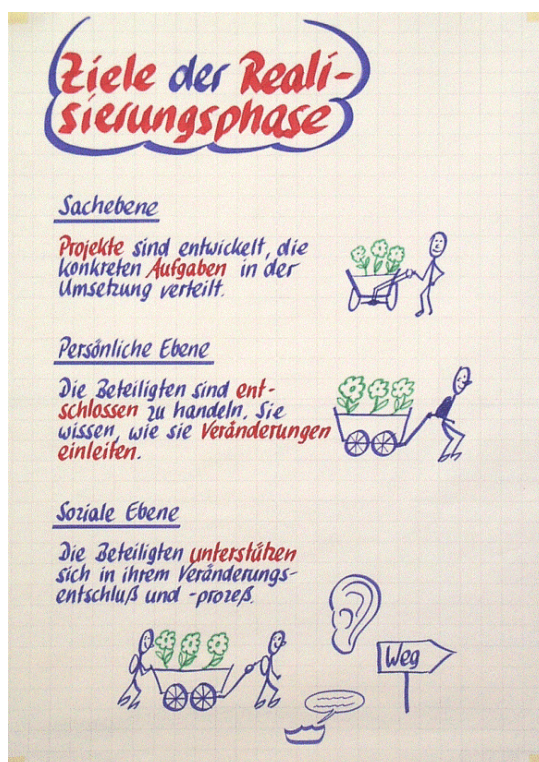 Ziele der Reali-
sierungsphase
Sachebene
Projekte sind entwickelt, die
konkreten Aufgaben in der
Umsetzung verteilt.
Persönliche Ebene
Die Beteiligten sind ent-
schlossen zu handeln. Sie
wissen, wie sie Veränderungen
einleiten.
Soziale Ebene
Die Beteiligten unterstützen
sich in ihrem Veränderungs-
entschluß und -prozeß.
Weg